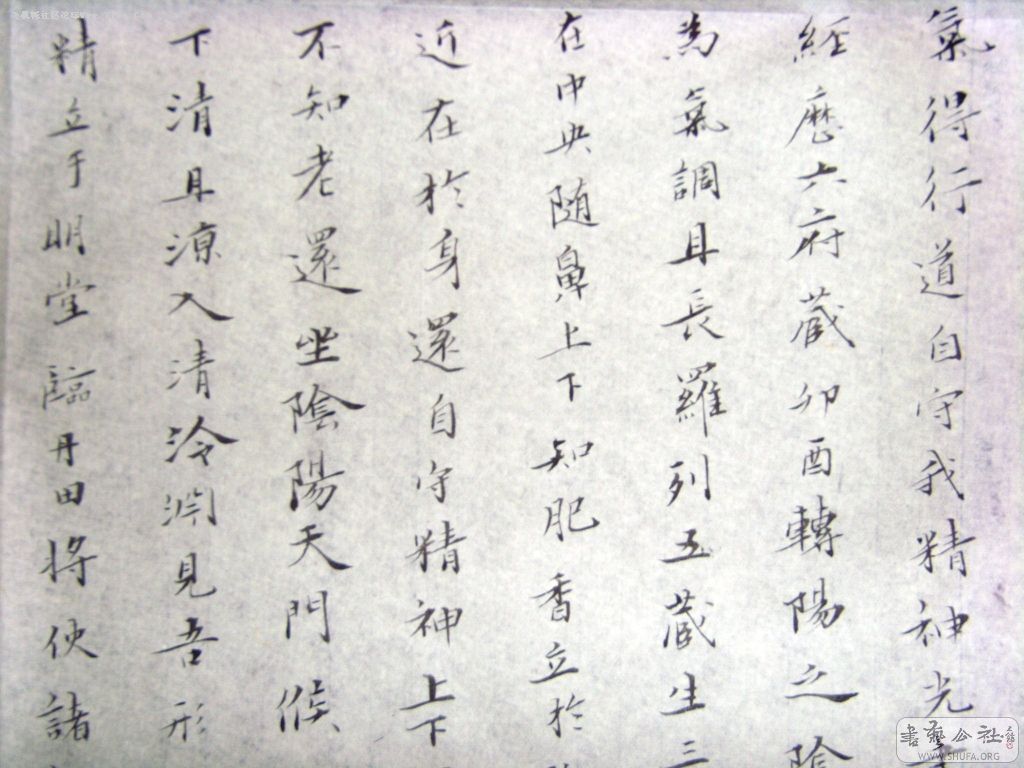 氣得行道自守我精神光
經歷六府藏卯酉轉陽之陰
為氣調且長羅列五藏生三
在中央随鼻上下知肥香立於
近在於身還自守精神上下
不知老還坐陰陽天門候
下清且涼入清泠渊見吾形
精立于明堂臨丹田将使諸
書藝公社
WWW.SHUFA.ORG